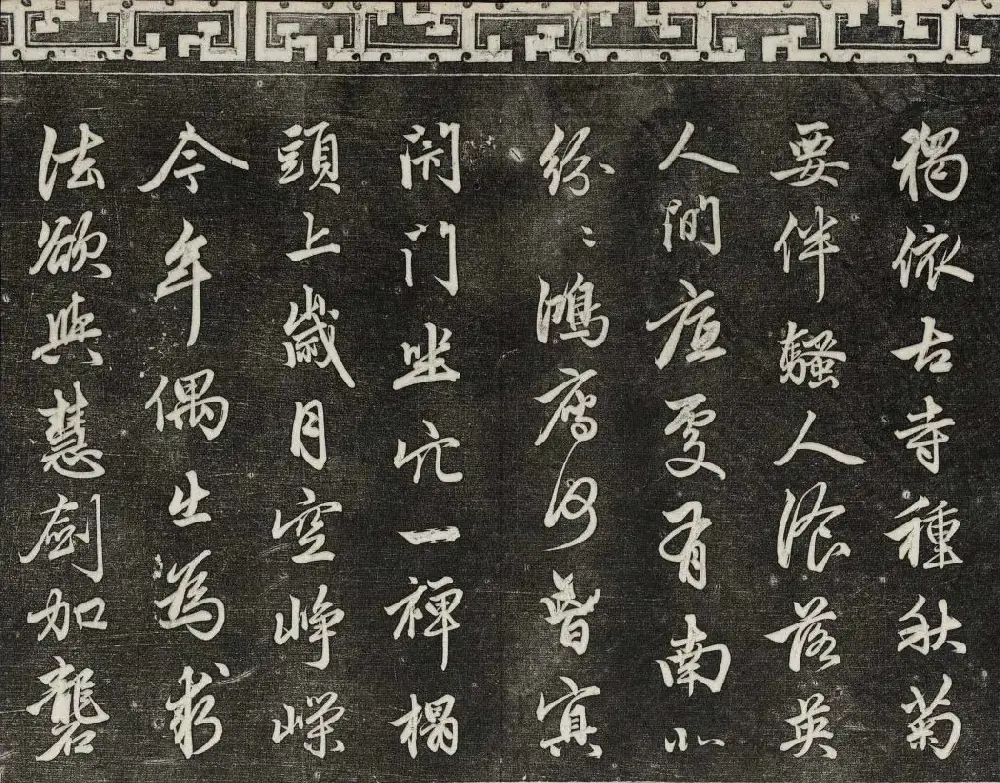 獨依古寺種秋菊
要伴騷人飡落英
人間底處有南北
紛〻鴻鴈何曾冥
閇門坐穴一禪榻
頭上歲月空崢嶸
今年偶出為求
法欲與慧劍加礱